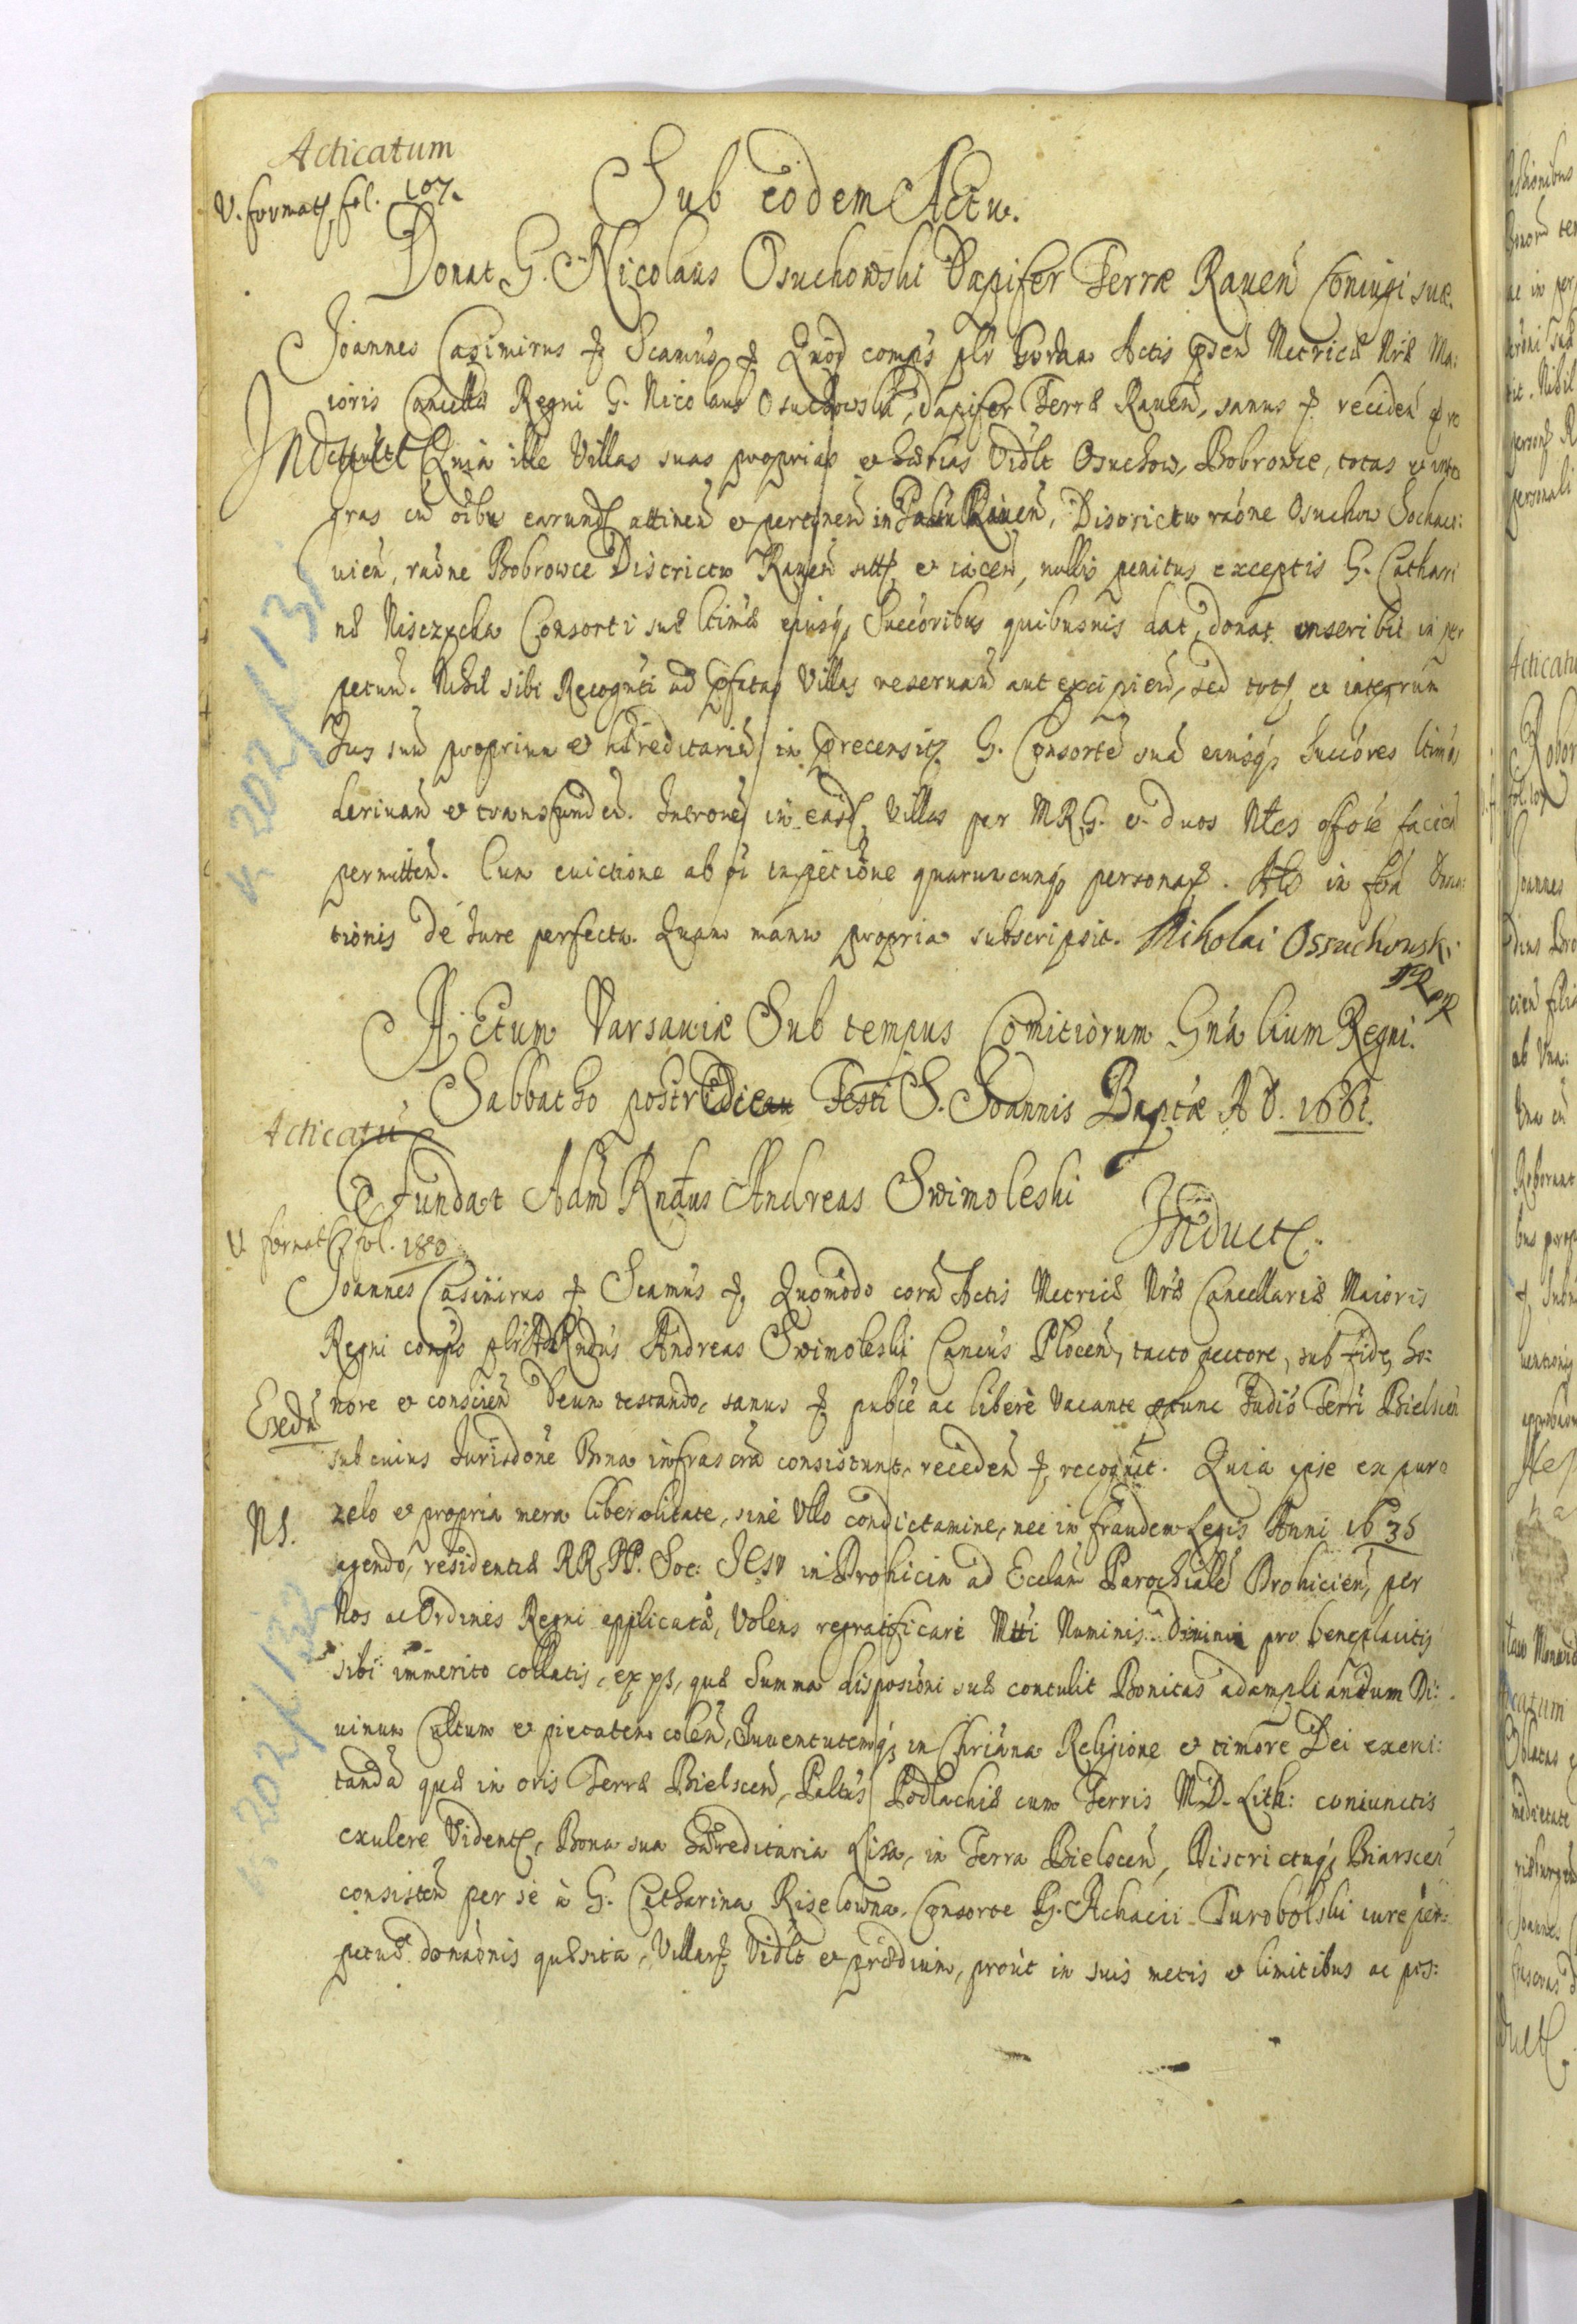 Acticatum
V. format fol. 107.
Sub eodem Actu.
Donat G. Nicolaus Osuchowski Dapifer Terræ Raueñ Coniugi suæ.
Joannes Casimirus & Scamus & Quod comps plr coram Actis pñ Metricæ Nræ Ma:
ioris Cancellæ Regni G. Nicolaus Osuchowski, Dapifer Terræ Raueñ, sanus & recideñ & re
Induct Quia ille Villas suas proprias et hærias Vidlt Osuchow, Bobrowce, totas et inte
gras cū oibus earund attineñ et pertineñ in Raueñ, Districtu raõne Osuchow Sochac:
uieñ, raõne Bobrowce Districtu Raueñ sitt et iaceñ, nullis penitus exceptis G. Cathari
næ Nisczycka Consorti suæ ltimæ eiusq Succoribus quibusuis dat, donat inscribit in per
petuum. Nihil sibi Recognti ad pfatas Villas reseruañ aut excipieñ, sed tot et integrum
Jus suū proprium et hæreditariū in præcensit G. Consortē suā eiusq Succores ltimos
deriuañ et transfundeñ. Introñ in easd Villas per MRG. et duos Nles offõe facieñ
permitteñ. Cum euictione ab oi impetitione quarumcunq personar. Ats in fta
tionis de Iure perfecta. Quam manu propria subscripsit. Mikolai Ossuchowski
Actum Varsauiæ Sub tempus Comitiorum Gnalium Regni.
Sabbatho postridie Festi S. Joannis Baptæ A D. 1661.
Acticatū
Fundat Adm Rndus Andreas Swimoleski
Induct.
V format fol. 180
Joannes Casimirus & Scamus & Quomodo corā Actis Metricæ Nræ Cancellariæ Maioris
Regni comps plr Adm Rndus Andreas Swimoleski Cancus Ploceñ, tacto pectore, sub fide, ho:
Exed nore et conscieñ Deum testando, sanus & publice ac liberè Vacante extunc Judiō Terri Bielsceñ
sub cuius Jurisdõne Bona infrascrã consistunt, recedeñ & recognit. Quia ipse ex puro
NS. zelo et propria mera liberalitate, sine Vllo condictamine, nec in fraudem Legis Anni 1635
agendo, residentiæ RR. PP. Soc: Jesv in Drohicin ad Eccłam Parochialē Drohicieñ, per
Nos ac Ordines Regni applicatā, Volens regratificare Mtti Numinis Diuini pro beneplacitis
sibi immerito collatis, ex ijs, quæ Summa dispositioni suæ contulit Bonitas ad ampliandum Di:
uinum Cultum et pietatem coleñ, Juuentutemq in Chriãna Religione et timore Dei exerci:
tandā quæ in oris Terræ Bielsceñ, Paltus Podlachiæ cum Terris M.D. Lith: coniunctis
exulere Vident, Bona sua hæreditaria Lisa, in Terra Bielsceñ, Districtuq Biansceñ
consisteñ per se à G. Catharina Kiselowna, Consorte G. Achacii Turobolski iure per:
petuæ donãonis quæsita, Villam Vidlt et prædium, prout in suis metis et limitibus ac pos: